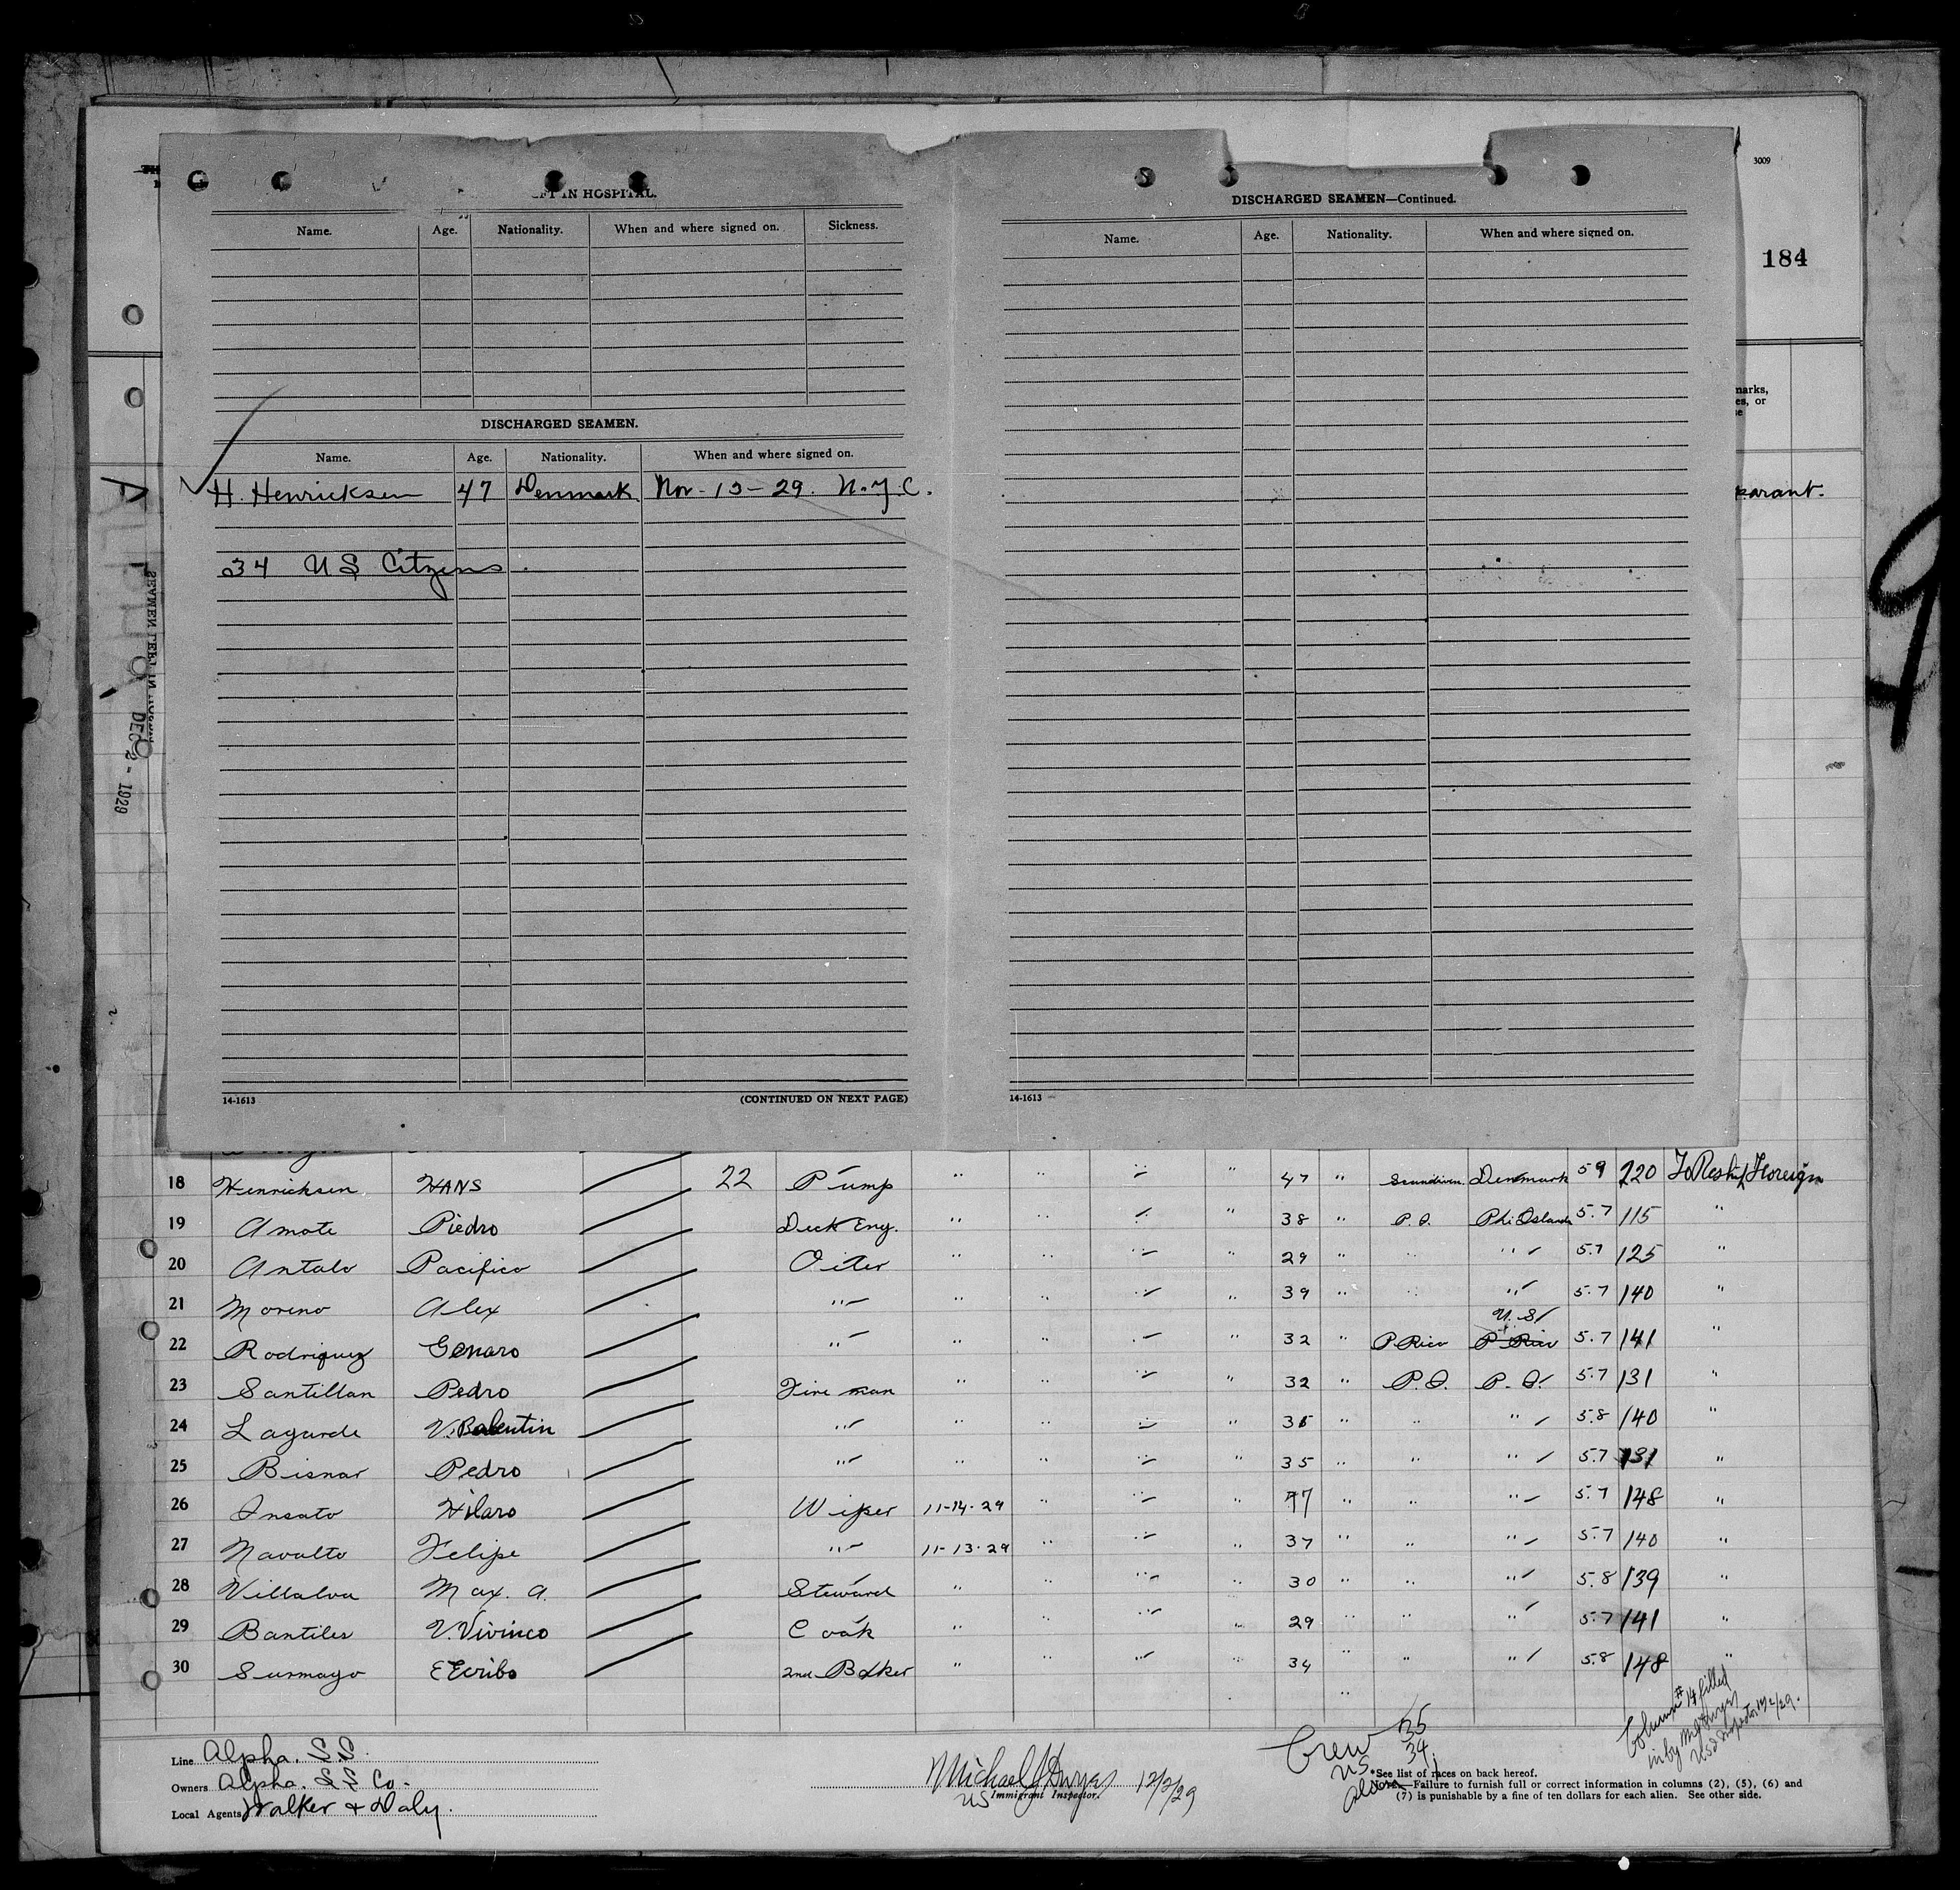 3009
184
IN HOSPITAL.
Name. Age. Nationality. When and where signed on. Sickness.
DISCHARGED SEAMEN.
Name. Age. Nationality. When and where signed on.
H. Henricksen 47 Denmark Nov-13-29. N.Y.C.
34 US Citzens.
14-1613 (CONTINUED ON NEXT PAGE)
DISCHARGED SEAMEN—Continued.
Name. Age. Nationality. When and where signed on.
14-1613
marks,
es, or
parant.
9
ALPHA
DEC 2 - 1929
18 Henricksen HANS 22 Pump " " " " 47 " Scandiven. Denmark 5 9 220 To Reship Foreign
19 Amate Piedro Deck Eng. " " " " 38 " P.I. Phi Islands 5.7 115 "
20 Antalo Pacifico Oiler " " " " 29 " " " 5.7 125 "
21 Moreno Alex " " " " " 39 " " " 5.7 140 "
U.S.
22 Rodriquez Genaro " " " " " 32 " P Rico P Rico 5.7 141 "
23 Santillan Pedro Fire man " " " " 32 " P.I. P.I. 5.7 131 "
24 Lagarde V. Balentin " " " " " 36 " " " 5.8 140 "
25 Bisnar Pedro " " " " " 35 " " " 5.7 131 "
26 Insato Hilaro Wiper 11-14-29 " " " 47 " " " 5.7 148 "
27 Navalto Felipe " 11-13-29 " " " 37 " " " 5.7 140 "
28 Villalva Max. A. Steward " " " " 30 " " " 5.8 139 "
29 Bantiles V. Vivinco Cook " " " " 29 " " " 5.7 141 "
30 Surmayo EEcribo 2nd Baker " " " " 34 " " " 5.8 148 "
Column #14 filled
in by M J Dwyer
US Inspector 12/2/29.
Line Alpha. S S.
Owners Alpha. S S Co.
Local Agents Walker & Daly.
Michael J Dwyer 12/2/29
US Immigrant Inspector.
Crew 35
US 34
Alien 1
*See list of races on back hereof.
NOTE.—Failure to furnish full or correct information in columns (2), (5), (6) and
(7) is punishable by a fine of ten dollars for each alien. See other side.